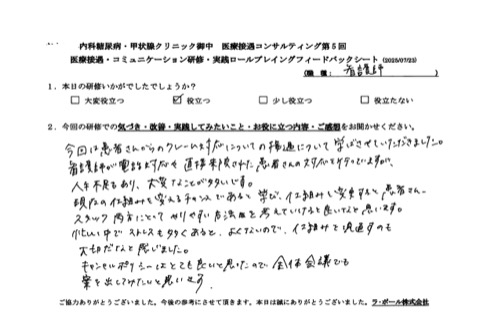 内科糖尿病・甲状腺クリニック御中 医療接遇コンサルティング第5回
医療接遇・コミュニケーション研修・実践ロールプレイングフィードバックシート(2025/07/23)
(職種:看護師)
1.本日の研修いかがでしたでしょうか?
□大変役立つ ☑役立つ □少し役立つ □役立たない
2.今回の研修での気づき・改善・実践してみたいこと・お役に立つ内容・ご感想をお聞かせください。
今回は患者さんからのクレーム対応についての接遇について学ばさせていただきました。
看護師が電話対応や直接来院された患者さんの対応を行っていますが、
人手不足もあり、大変なことが多いです。
現在の仕組みを変えるチャンスであると学び、仕組みを変更すると患者さん、
スタッフ両方にとってやりやすい方法を考えていけると良いなと思います。
忙しい中でストレスも多くあると、よくないので、仕組みを見直すのも
大切だなと感じました。
キャンセルポリシーはとても良いと思ったので全体会議でも
案を出してみたいと思います。
ご協力ありがとうございました。今後の参考にさせて頂きます。本日は誠にありがとうございました。ラ・ポール株式会社